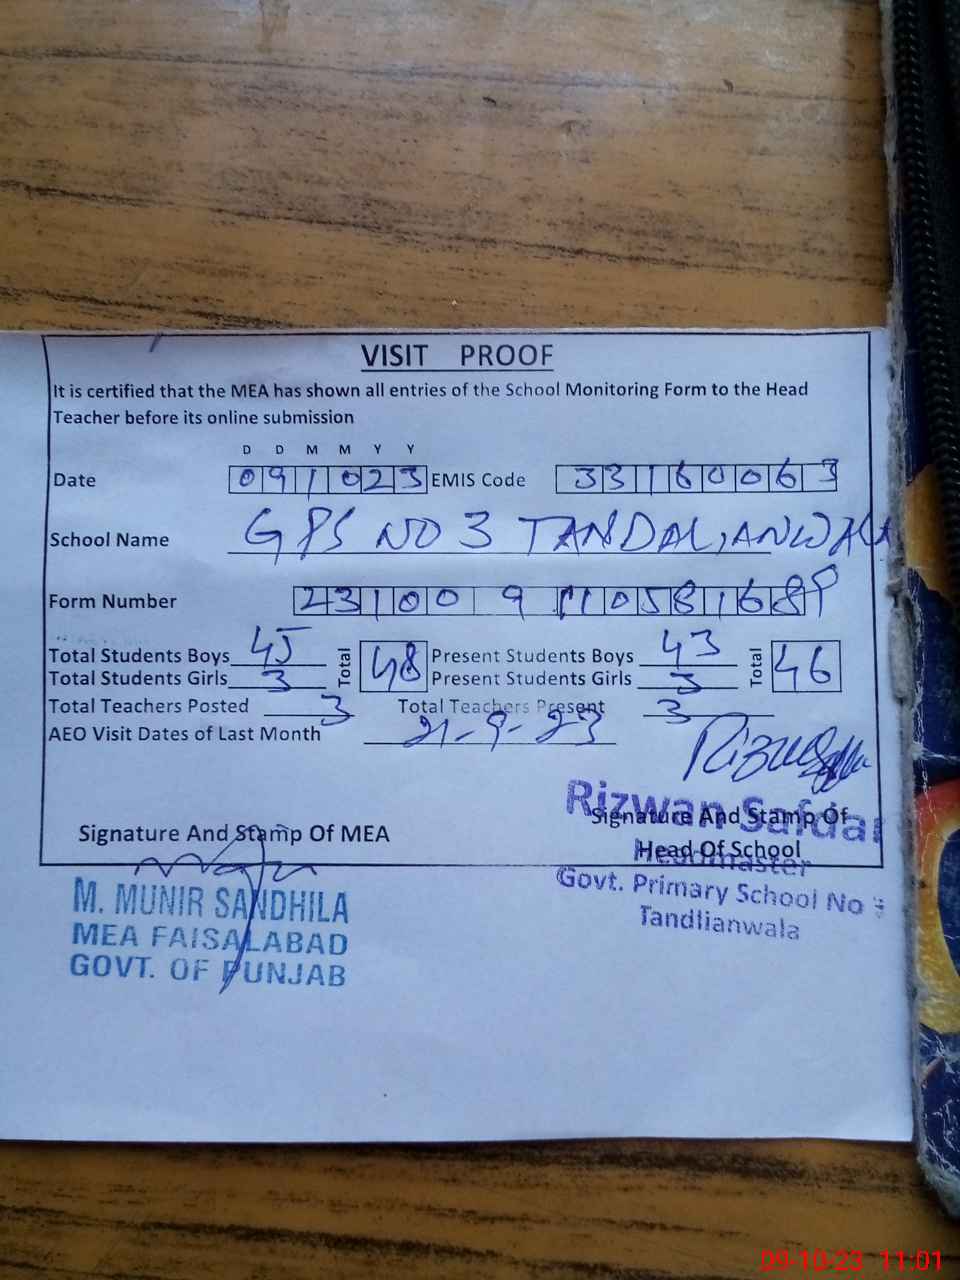 VISIT PROOF
It is certified that the MEA has shown all entries of the School Monitoring Form to the Head
Teacher before its online submission
D D M M Y Y
Date 091023 EMIS Code 33160063
School Name GPS NO 3 TANDALIANWALA
Form Number
Total Students Boys 45 Total 48 Present Students Boys 43 Total 46
Total Students Girls 3 Present Students Girls 3
Total Teachers Posted 3 Total Teachers Present 3
AEO Visit Dates of Last Month 21-9-23
Signature And Stamp Of MEA
Signature And Stamp Of
Head Of School
Rizwan Safdar
Headmaster
Govt. Primary School No 3
Tandlianwala
M. MUNIR SANDHILA
MEA FAISALABAD
GOVT. OF PUNJAB
09-10-23 11:01